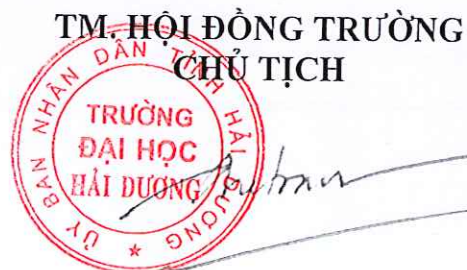 TM. HỘI ĐỒNG TRƯỜNG
CHỦ TỊCH
ỦY BAN NHÂN DÂN TỈNH HẢI DƯƠNG
TRƯỜNG
ĐẠI HỌC
HẢI DƯƠNG